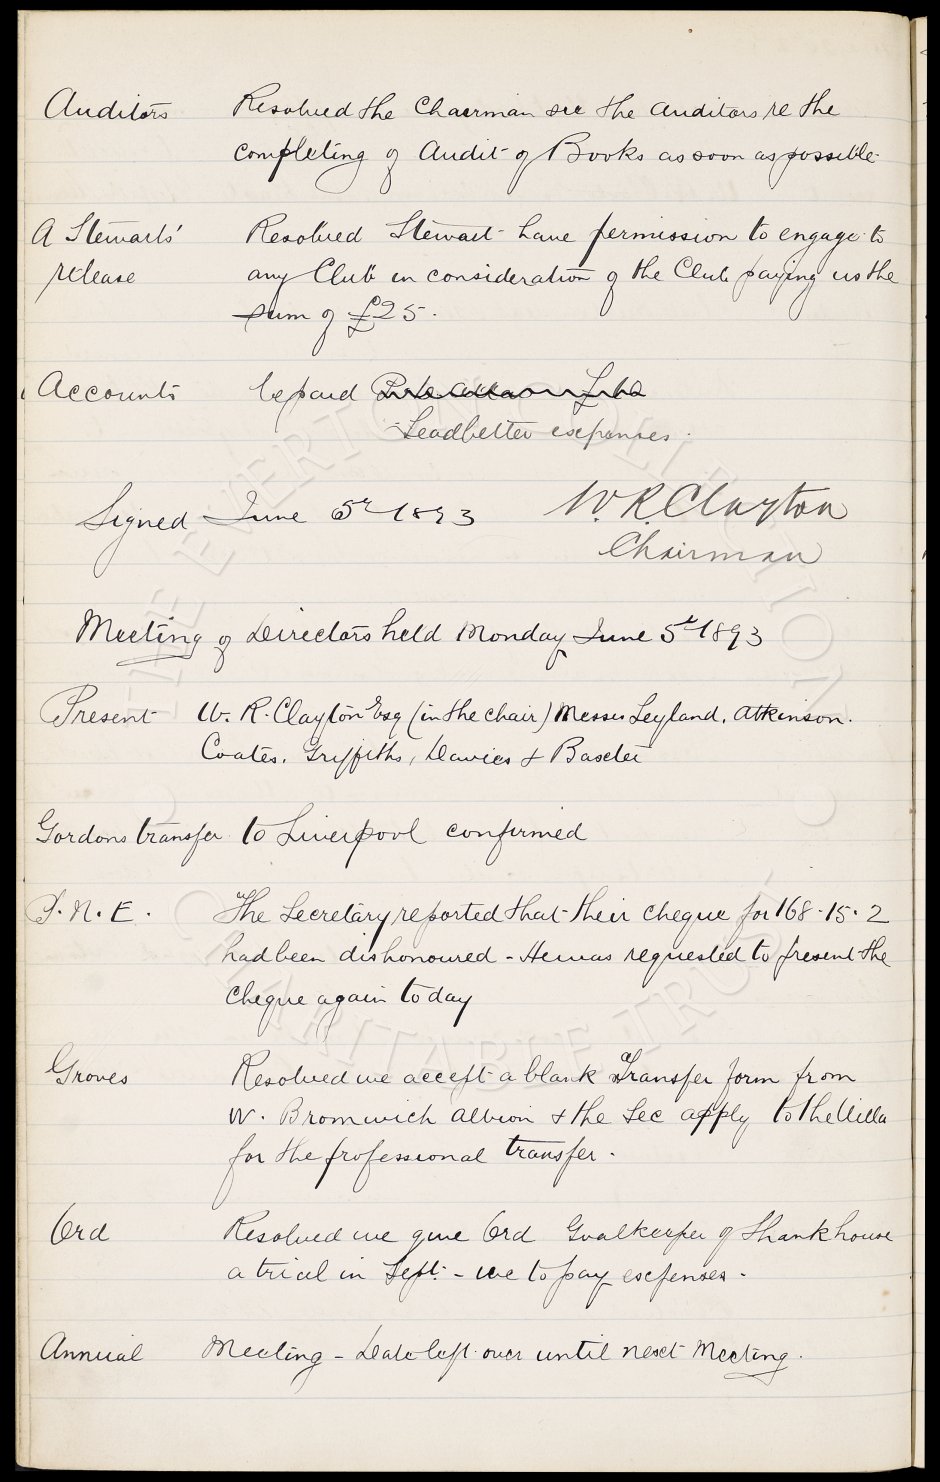 Auditors Resolved the Chairman see the Auditors re the
completing of Audit of Books as soon as possible
A Stewarts' Resolved Stewart have permission to engage to
release any Club in consideration of the Club paying us the
sum of £25.
Accounts be paid
Leadbetter expenses.
Signed June 5th 1893 W. R. Clayton
Chairman
Meeting of Directors held Monday June 5th 1893
Present W. R. Clayton Esq (in the chair) Messrs Leyland, Atkinson.
Coates, Griffiths, Davies & Baxter
Gordons transfer to Liverpool confirmed
P. N. E. The Secretary reported that their cheque for 168-15-2
had been dishonoured - He was requested to present the
cheque again today
Groves Resolved we accept a blank Transfer form from
W. Bromwich Albion & the Sec apply to the Villa
for the professional transfer.
Ord Resolved we give Ord Goalkeeper of Shankhouse
a trial in Sept. - we to pay expenses.
Annual Meeting - Date left over until next Meeting.
THE EVERTON COLLECTION
CHARITABLE TRUST